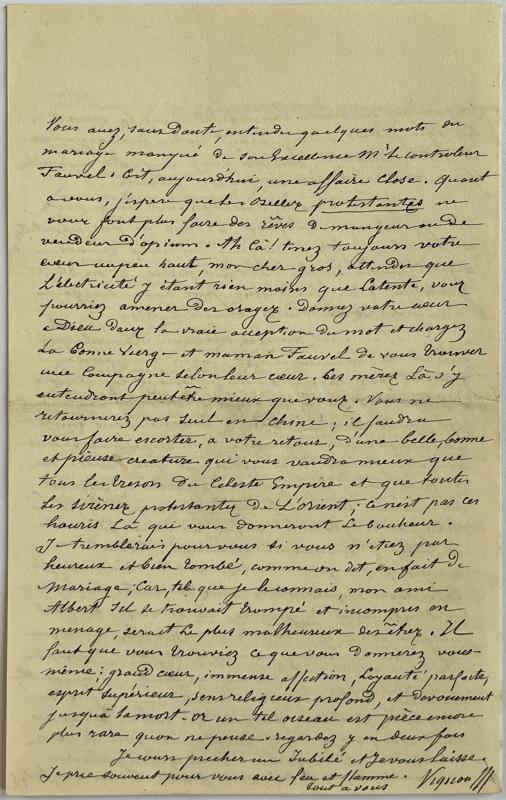 Vous avez, sans doute, entendu quelques mots du
mariage manqué de son Excellence Mr le controleur
Fauvel. C'est, aujourd'hui, une affaire close. Quant
a vous, j'espère que les protestantes ne
vous font plus faire des rêves de mangeur ou de
vendeur d'opium. Ah là! tenez toujours votre
cœur un peu haut, mon cher gros, attendu que
L'électricité y étant rien moins que latente, vous
pourriez amener des orages. Donnez votre cœur
a Dieu dans la vraie acception du mot et chargez
La bonne Vierge et maman Fauvel de vous trouver
une Compagne selon leur cœur. Ces mères là s'y
entendront peut être mieux que vous. Vous ne
retournerez pas seul en Chine; il faudra
vous faire escorter, a votre retour, d'une belle, bonne
et pieuse creature qui vous vaudra mieux que
tous les tresors du Celeste Empire et que toutes
les sirènes protestantes de L'orient; ce n'est pas ces
houris là qui vous donneront le bonheur.
Je tremblerais pour vous si vous n'étiez pas
heureux et bien tombé, comme on dit, en fait de
Mariage, Car, tel que je le connais, mon ami
Albert s'il se trouvait trompé et incompris en
menage, serait le plus malheureux des êtres. Il
faut que vous trouviez ce que vous donnerez vous-
même; grand cœur, immense affection, Loyauté parfaite,
esprit supérieur, sens religieux profond, et devouement
jusqu'à la mort. or un tel oiseau est pièce encore
plus rare qu'on ne pense. regardez y en deux fois
Je vous preche un Jubilé et Je vous laisse.
Je prie souvent pour vous avec feu et flamme.
tout a vous
Vignon